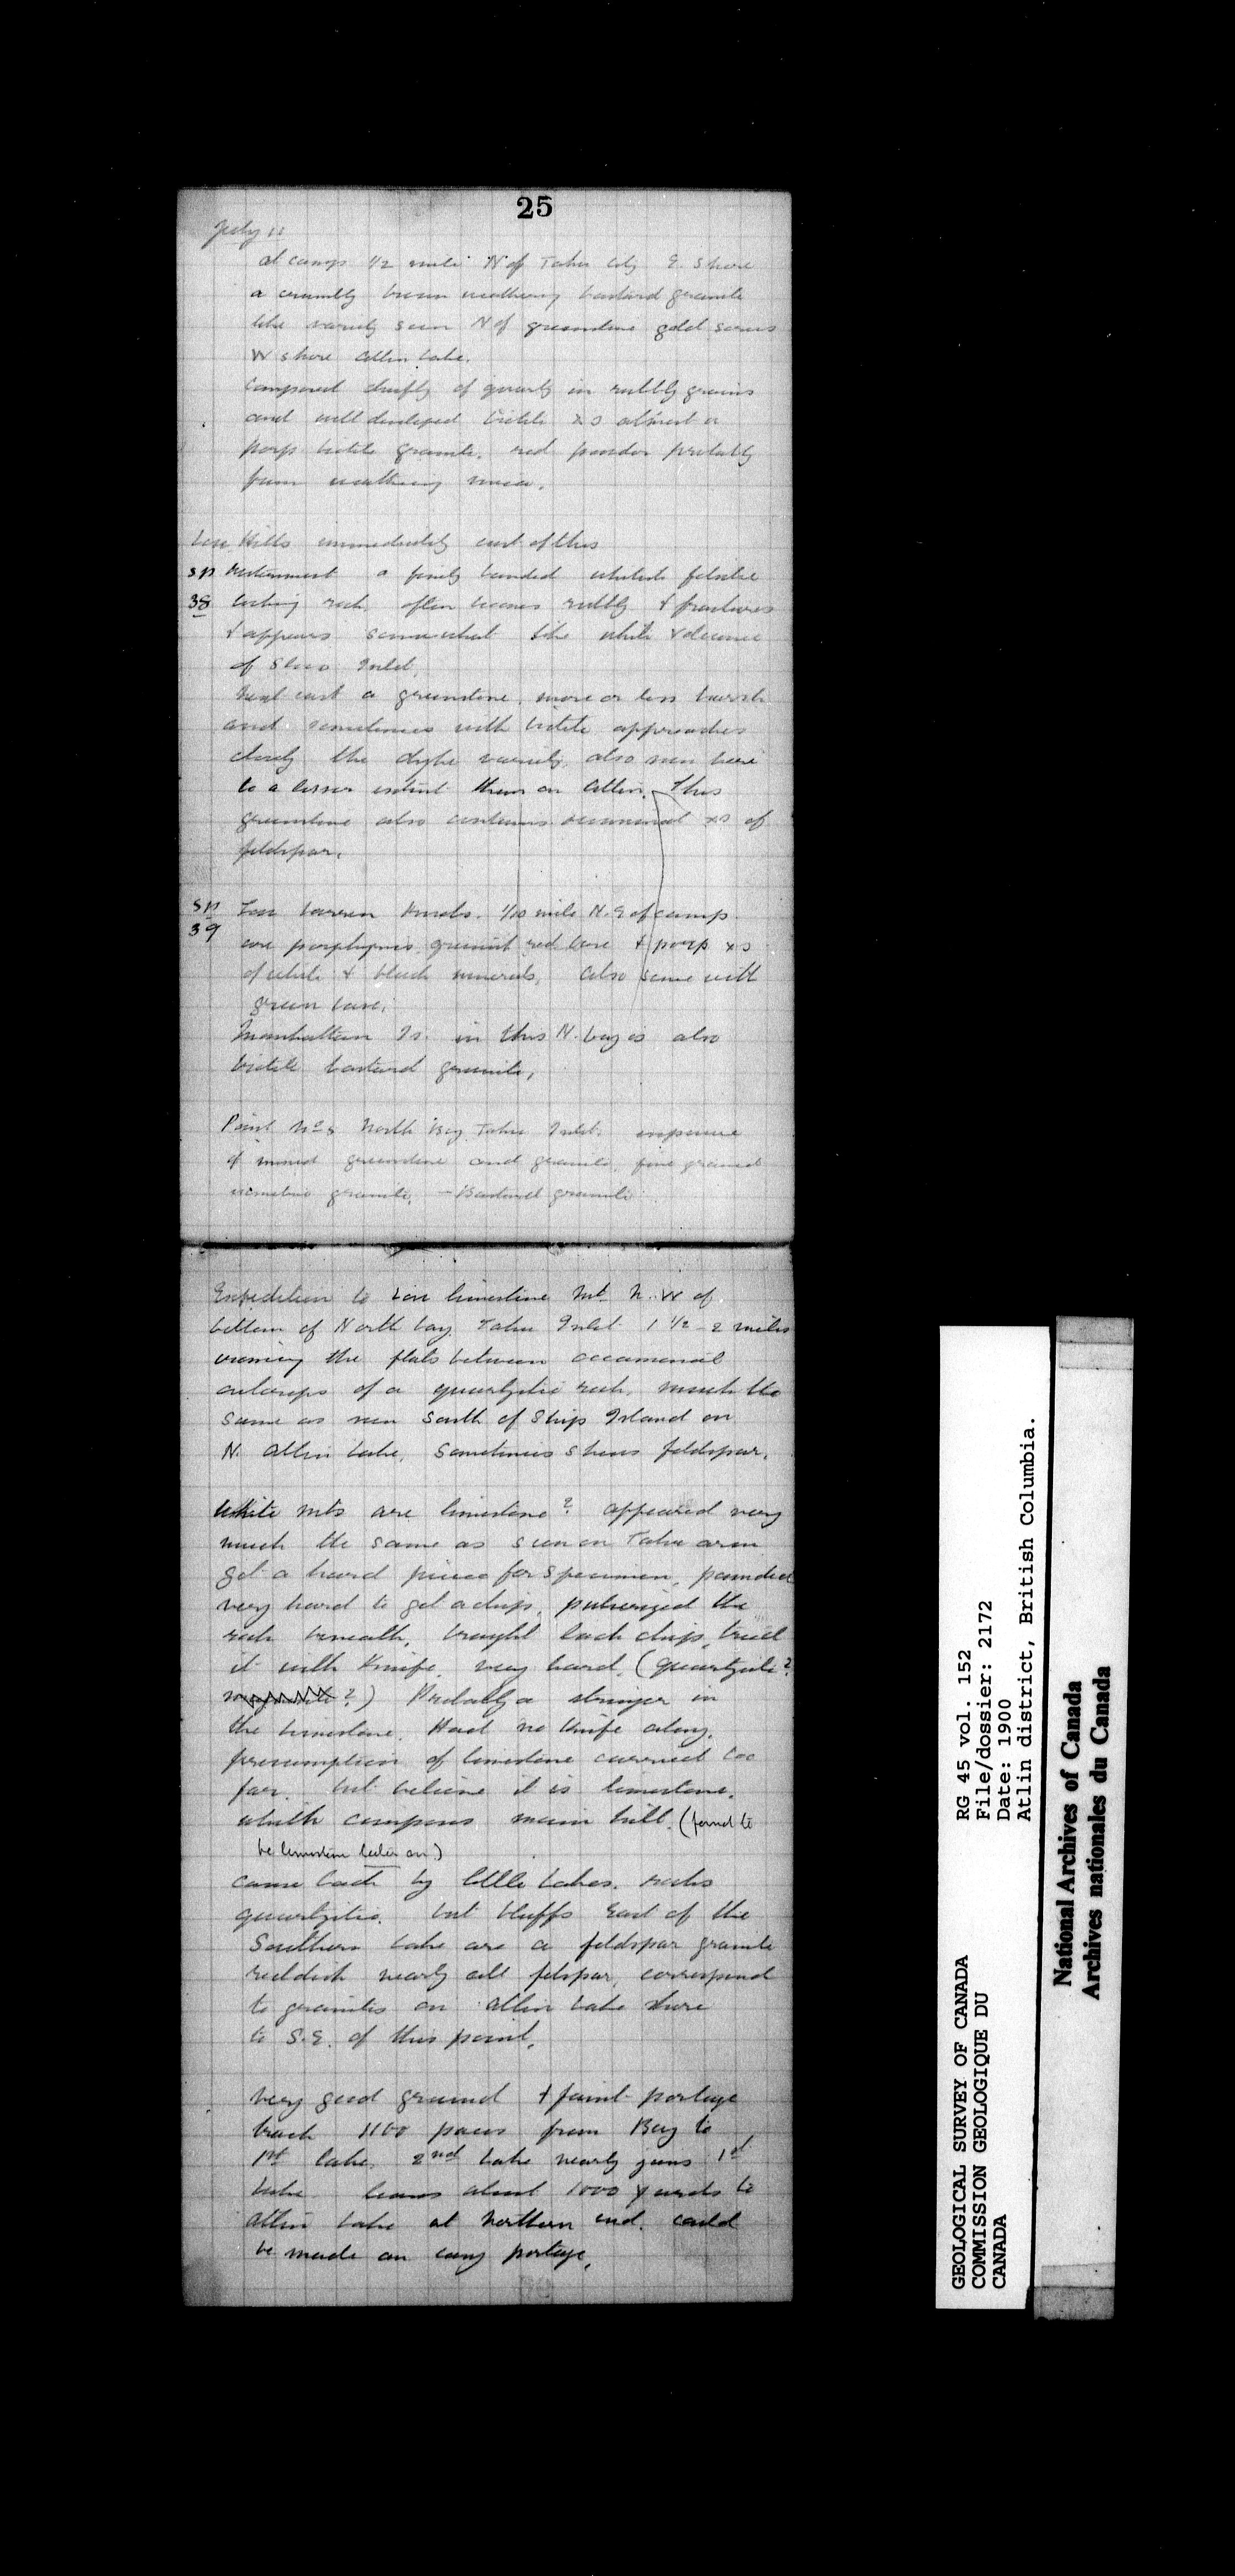 25
July 11
at camp 1/2 mile N of Taku City E. Shore
a crumbly brown weathering bastard granite
like variety seen N of greenstone gold series
W shore Atlin Lake.
Composed chiefly of quartz in rubbly grains
and well developed biotite xs almost a
porp biotite granite. red powder probably
from weathering mica.
Low Hills immediately east of this
SP westernmost a finely banded whitish felsitic
38 looking rock, often becomes rubbly & fractures
& appears somewhat like white volcanic
of Sloo Inlet.
Next east a greenstone, more or less
and sometimes with biotite approaches
closely the dyke variety also seen here
to a lesser extent than on Atlin. This
greenstone also contains occasional xs of
feldspar.
SP Low barren knobs. 1/10 mile N.E of camp
39 are porphyries greenish red base & porp xs
of white & black minerals, also some with
green base.
Manhattan Is. in this N. bay is also
biotite bastard granite,
Point No 8 North Bay Taku Inlet. exposure
of mixed greenstone and granite, fine grained
granite, - Bastard granite
Expedition to Low limestone Mt. N.W of
bottom of North bay Taku Inlet 1 1/2 - 2 miles
crossing the flats between occasional
outcrops of a quartzitic rock, much the
same as seen South of Ship Island on
N. Atlin Lake, sometimes shows feldspar.
White mts are limestone? appeared very
much the same as seen on Taku arm
got a hard piece for specimen, pounded
very hard to get a chip, pulverized the
rock beneath, brought back chip, tried
it with knife, very hard, (quartzite?
?) Probably a stringer in
the limestone. Had no knife along.
presumption of limestone carried too
far. but believe it is limestone.
which composes main hill. (found to
be limestone later on)
came back by little lakes. rocks
quartzitic. but bluffs East of the
Southern lake are a feldspar granite
reddish nearly all felspar, correspond
to granites on Atlin Lake shore
to S.E. of this point.
very good ground & faint portage
track 1100 paces from Bay to
1st lake. 2nd Lake nearly joins 1st
Lake leaves about 1000 yards to
Atlin Lake at Northern end. could
be made an easy portage.
GEOLOGICAL SURVEY OF CANADA
COMMISSION GEOLOGIQUE DU
CANADA
RG 45 vol. 152
File/dossier: 2172
Date: 1900
Atlin district, British Columbia.
National Archives of Canada
Archives nationales du Canada